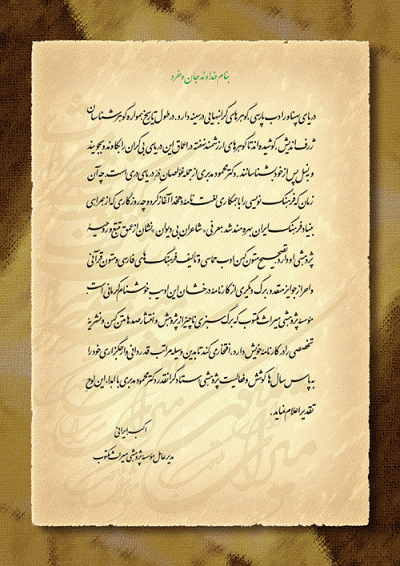 بنام خداوند جان و خرد
دریای پهناور ادب پارسی، گوهرهای گرانبهایی در سینه دارد. در طول تاریخ همواره گوهرشناسان
ژرف‌اندیش، کوشیده‌اند تا گوهرهای ارزشمند نهفته در اعماق این دریای بی‌کران را بکاوند و بجویند
و به نسل پس از خود بشناسانند. دکتر محمود مدبری از جمله غواصان دُرّ دریای دری است. چه آن
زمان که فرهنگ نویسی را با همکاری لغت نامه دهخدا آغاز کرد و چه روزگاری که از همراهی
بنیاد فرهنگ ایران بهره‌مند شد. معرفی «شاعران بی‌دیوان»، نشان از عمق تتبع و روحیۀ
پژوهشی او دارد. تصحیح متون کهن ادب حماسی و تألیف فرهنگ‌های فارسی و متون قرآنی
و احراز جوایز متعدد، برگ دیگری از کارنامۀ درخشان این ادیب خوشنام کرمانی است.
مؤسسه پژوهشی میراث مکتوب که برگ سبزی ناچیز از پژوهش و انتشار صدها متن کهن و نشریۀ
تخصصی را در کارنامۀ خویش دارد، افتخار می‌کند تا بدین وسیله مراتب قدردانی و حقگزاری خود را
به پاس سال‌ها کوشش و فعالیت پژوهشی استاد گرانقدر دکتر محمود مدبری با اهدا، این لوح
تقدیر اعلام نماید.
اکبر ایرانی
مدیر عامل مؤسسه پژوهشی میراث مکتوب